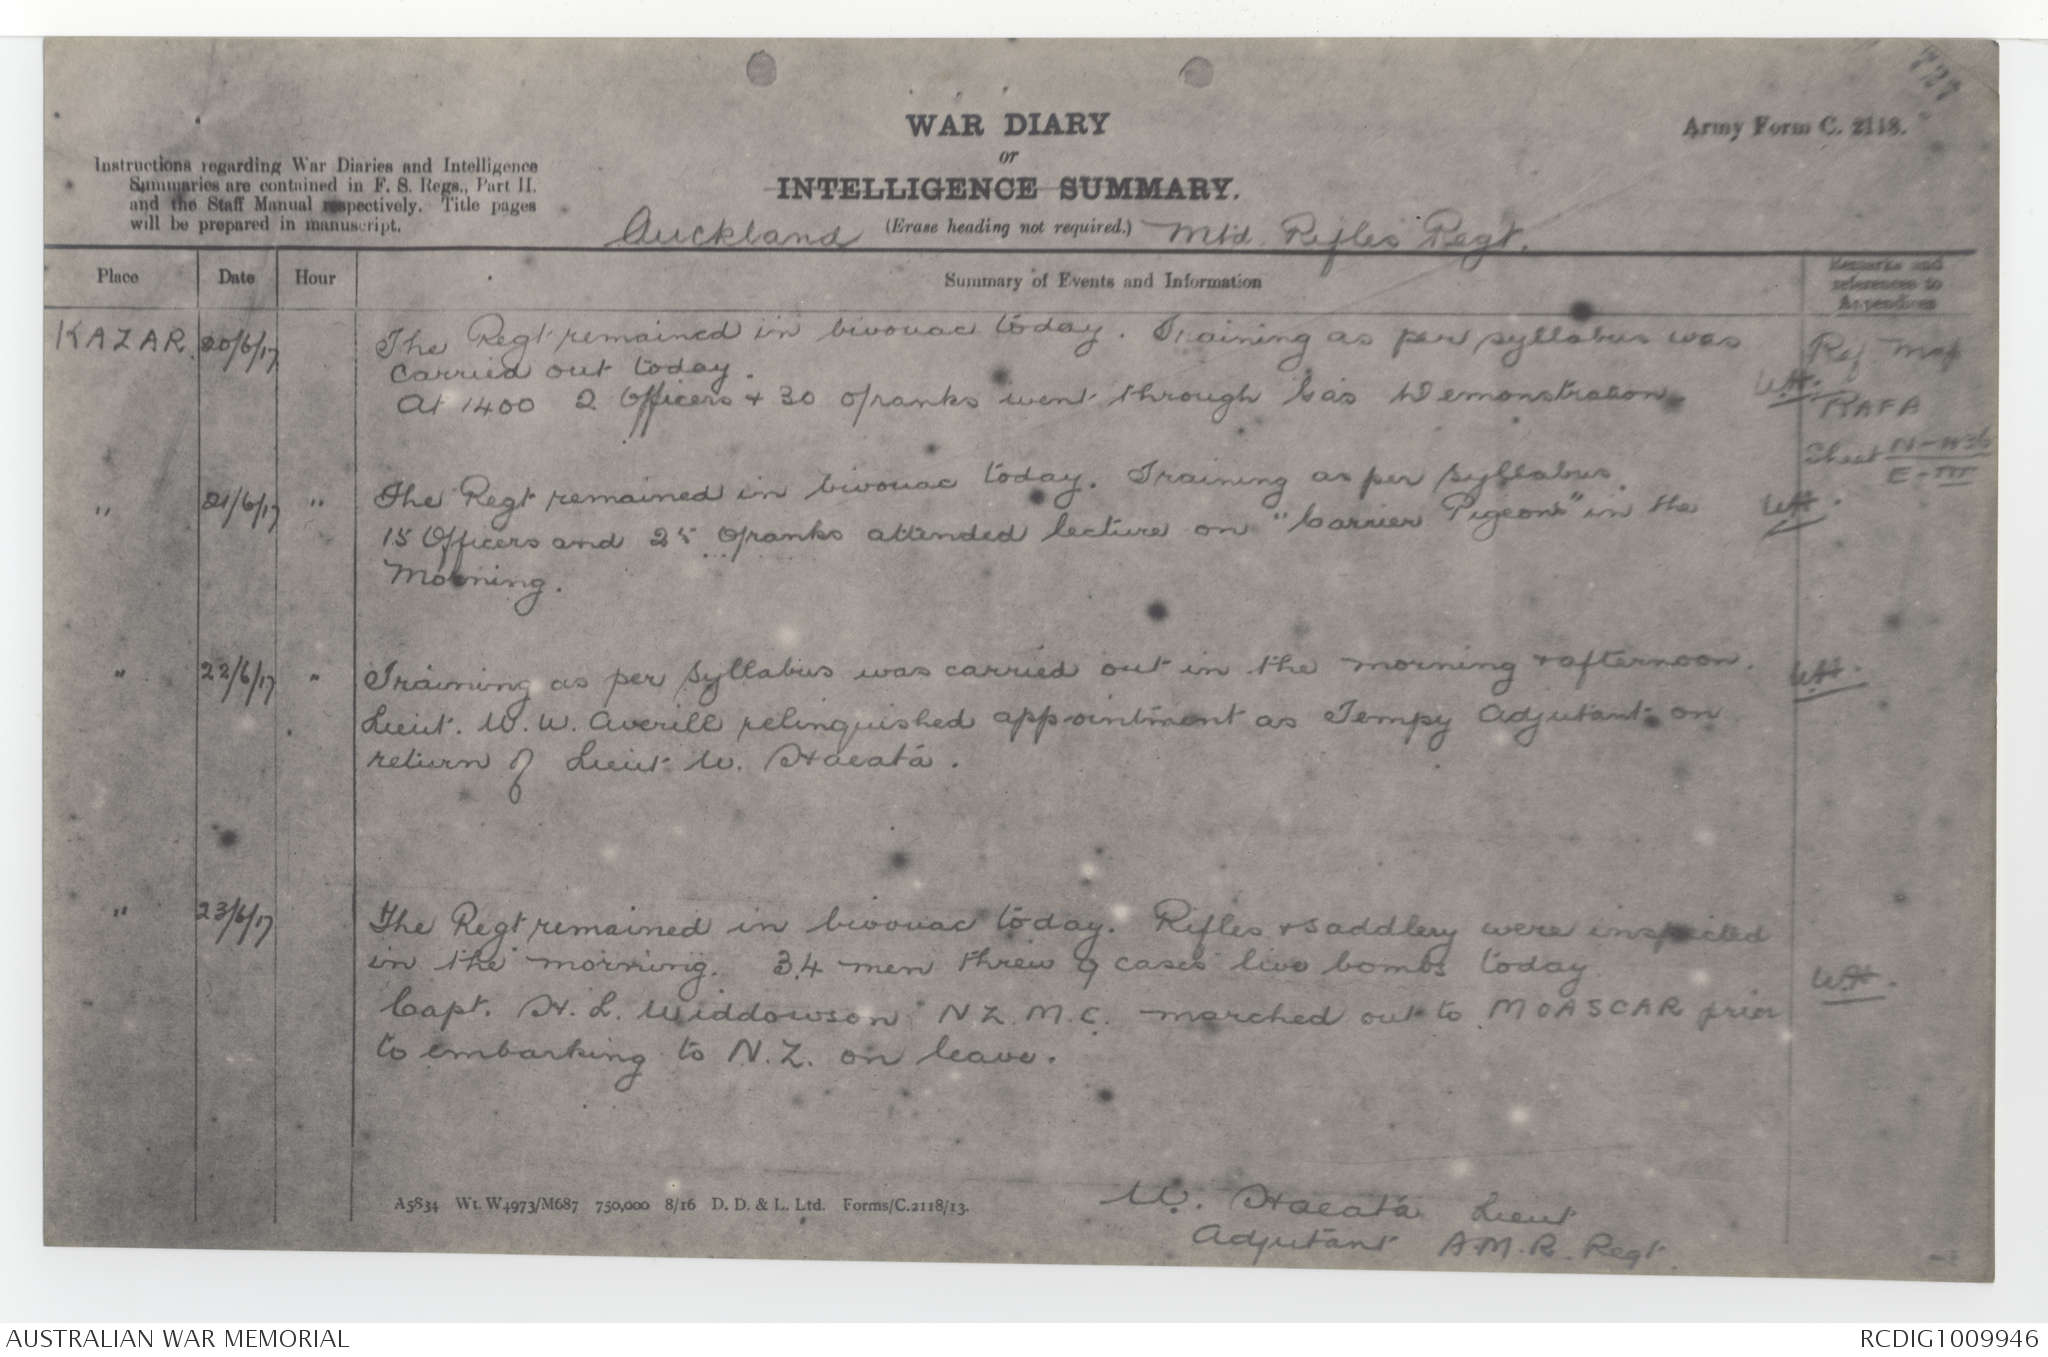 727
WAR DIARY
or
INTELLIGENCE SUMMARY.
Army Form C. 2118.
Instructions regarding War Diaries and Intelligence
Summaries are contained in F. S. Regs., Part II.
and the Staff Manual respectively. Title pages
will be prepared in manuscript.
(Erase heading not required.)
Auckland Mtd. Rifles Regt.
Place Date Hour Summary of Events and Information Remarks and
references to
Appendices
KAZAR. 20/6/17 The Regt remained in bivouac today. Training as per syllabus was
carried out today.
At 1400 2 Officers + 30 O/ranks went through Gas Demonstration.
Ref Map
RAFA
Sheet
" 21/6/17 " The Regt remained in bivouac today. Training as per syllabus.
15 Officers and 25 O/ranks attended lecture on "Carrier Pigeons" in the
Morning.
" 22/6/17 " Training as per syllabus was carried out in the morning + afternoon.
Lieut. W. W. Averill relinquished appointment as Tempy Adjutant on
return of Lieut W. Haeata.
" 23/6/17 The Regt remained in bivouac today. Rifles + saddlery were inspected
in the morning. 34 men threw 9 cases live bombs today
Capt. H. L. Widdowson N Z. M. C. marched out to MOASCAR prior
to embarking to N.Z. on leave.
A5834 Wt. W4973/M687 750,000 8/16 D. D. & L. Ltd. Forms/C.2118/13.
W. Haeata Lieut
Adjutant A.M.R. Regt.
AUSTRALIAN WAR MEMORIAL
RCDIG1009946